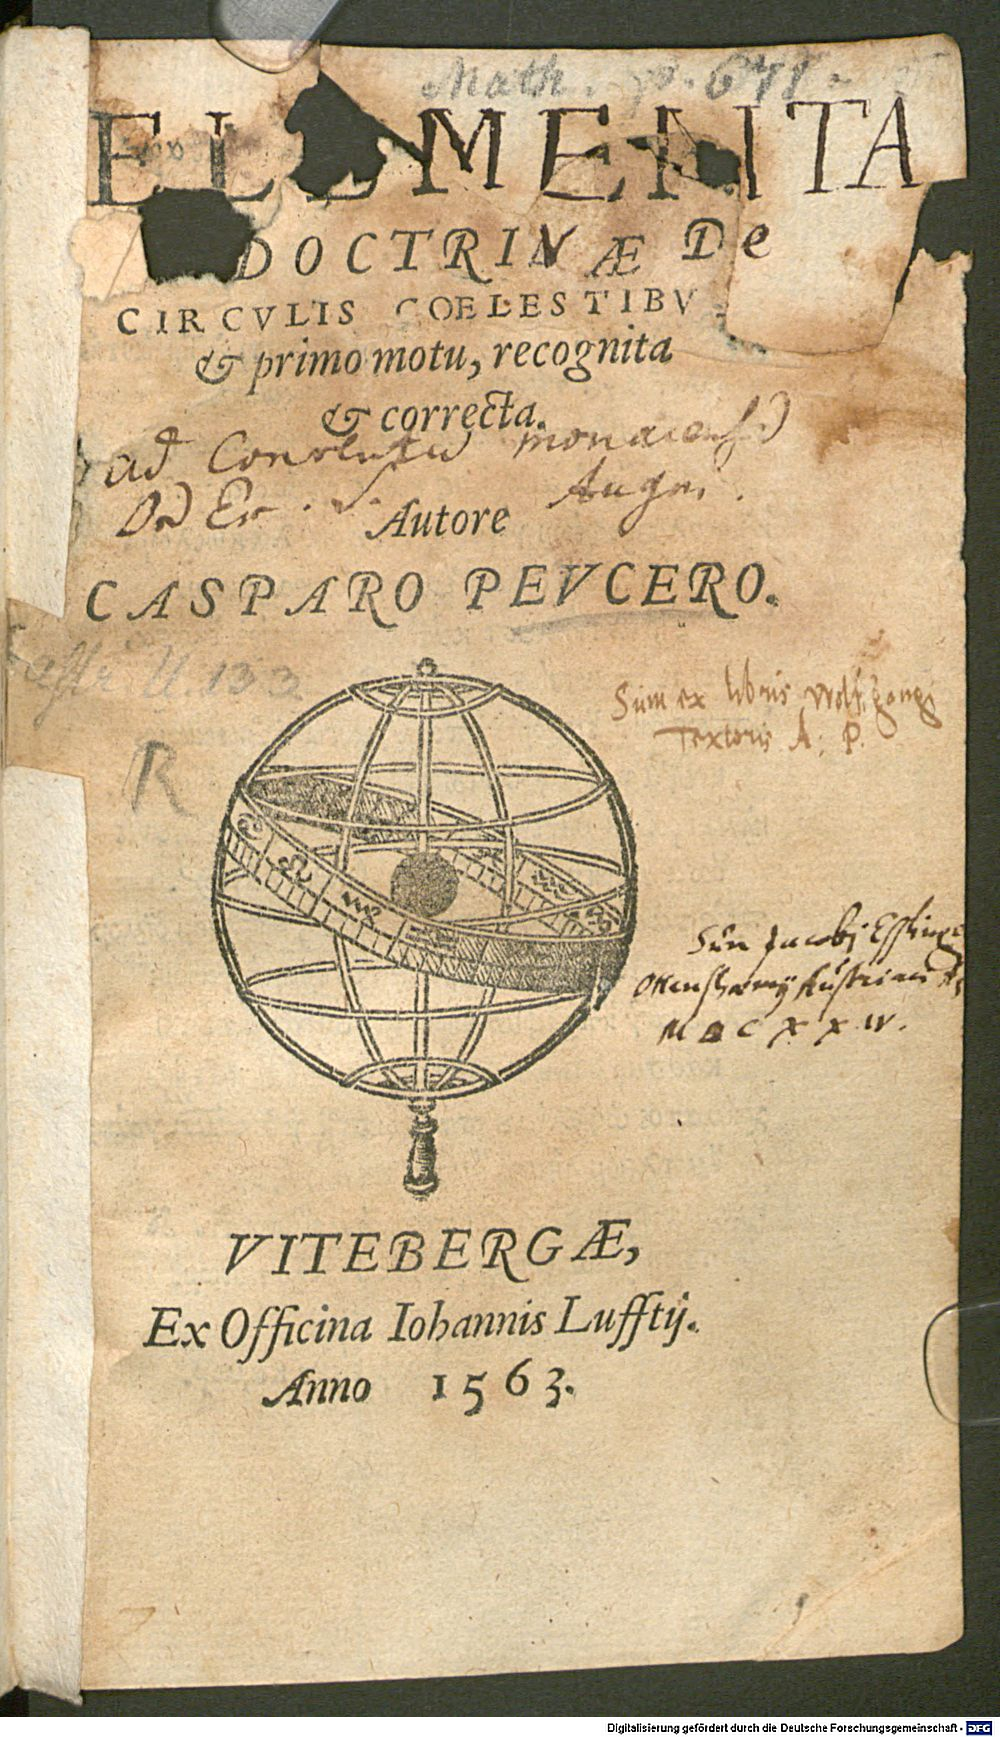 Math. p. 671.
ELEMENTA
DOCTRINÆ De
CIRCVLIS COELESTIBV
& primo motu, recognita
& correcta.
ad Conventum monacens
Ord Er. S. Augus.
Autore
CASPARO PEVCERO.
U. 133
Sum ex libris Wolfgangi
Textoris A. P.
R
Sum Jacobi
MDCXXIV.
VITEBERGÆ,
Ex Officina Iohannis Lufftij.
Anno 1563.
Digitalisierung gefördert durch die Deutsche Forschungsgemeinschaft - DFG